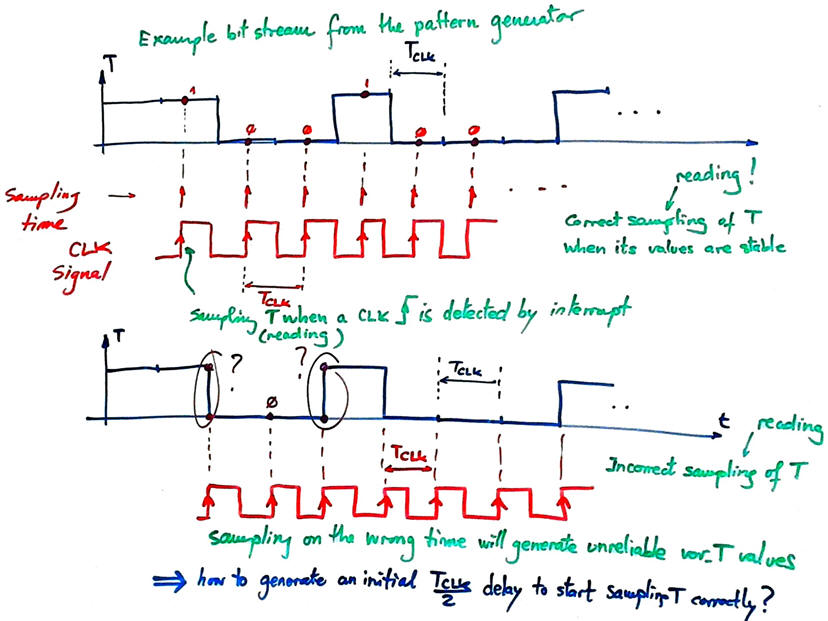 Example bit stream from the pattern generator
T
TCLK
1 0 0 1 0 0
. . .
reading!
Sampling time
. . .
Correct sampling of T
when its values are stable
CLK
Signal
TCLK
Sampling T when a CLK is detected by interrupt
(reading)
T
? ?
0
TCLK
. .
t
reading
TCLK
Incorrect sampling of T
Sampling on the wrong time will generate unreliable var_T values
⇒ how to generate an initial TCLK/2 delay to start sampling T correctly?